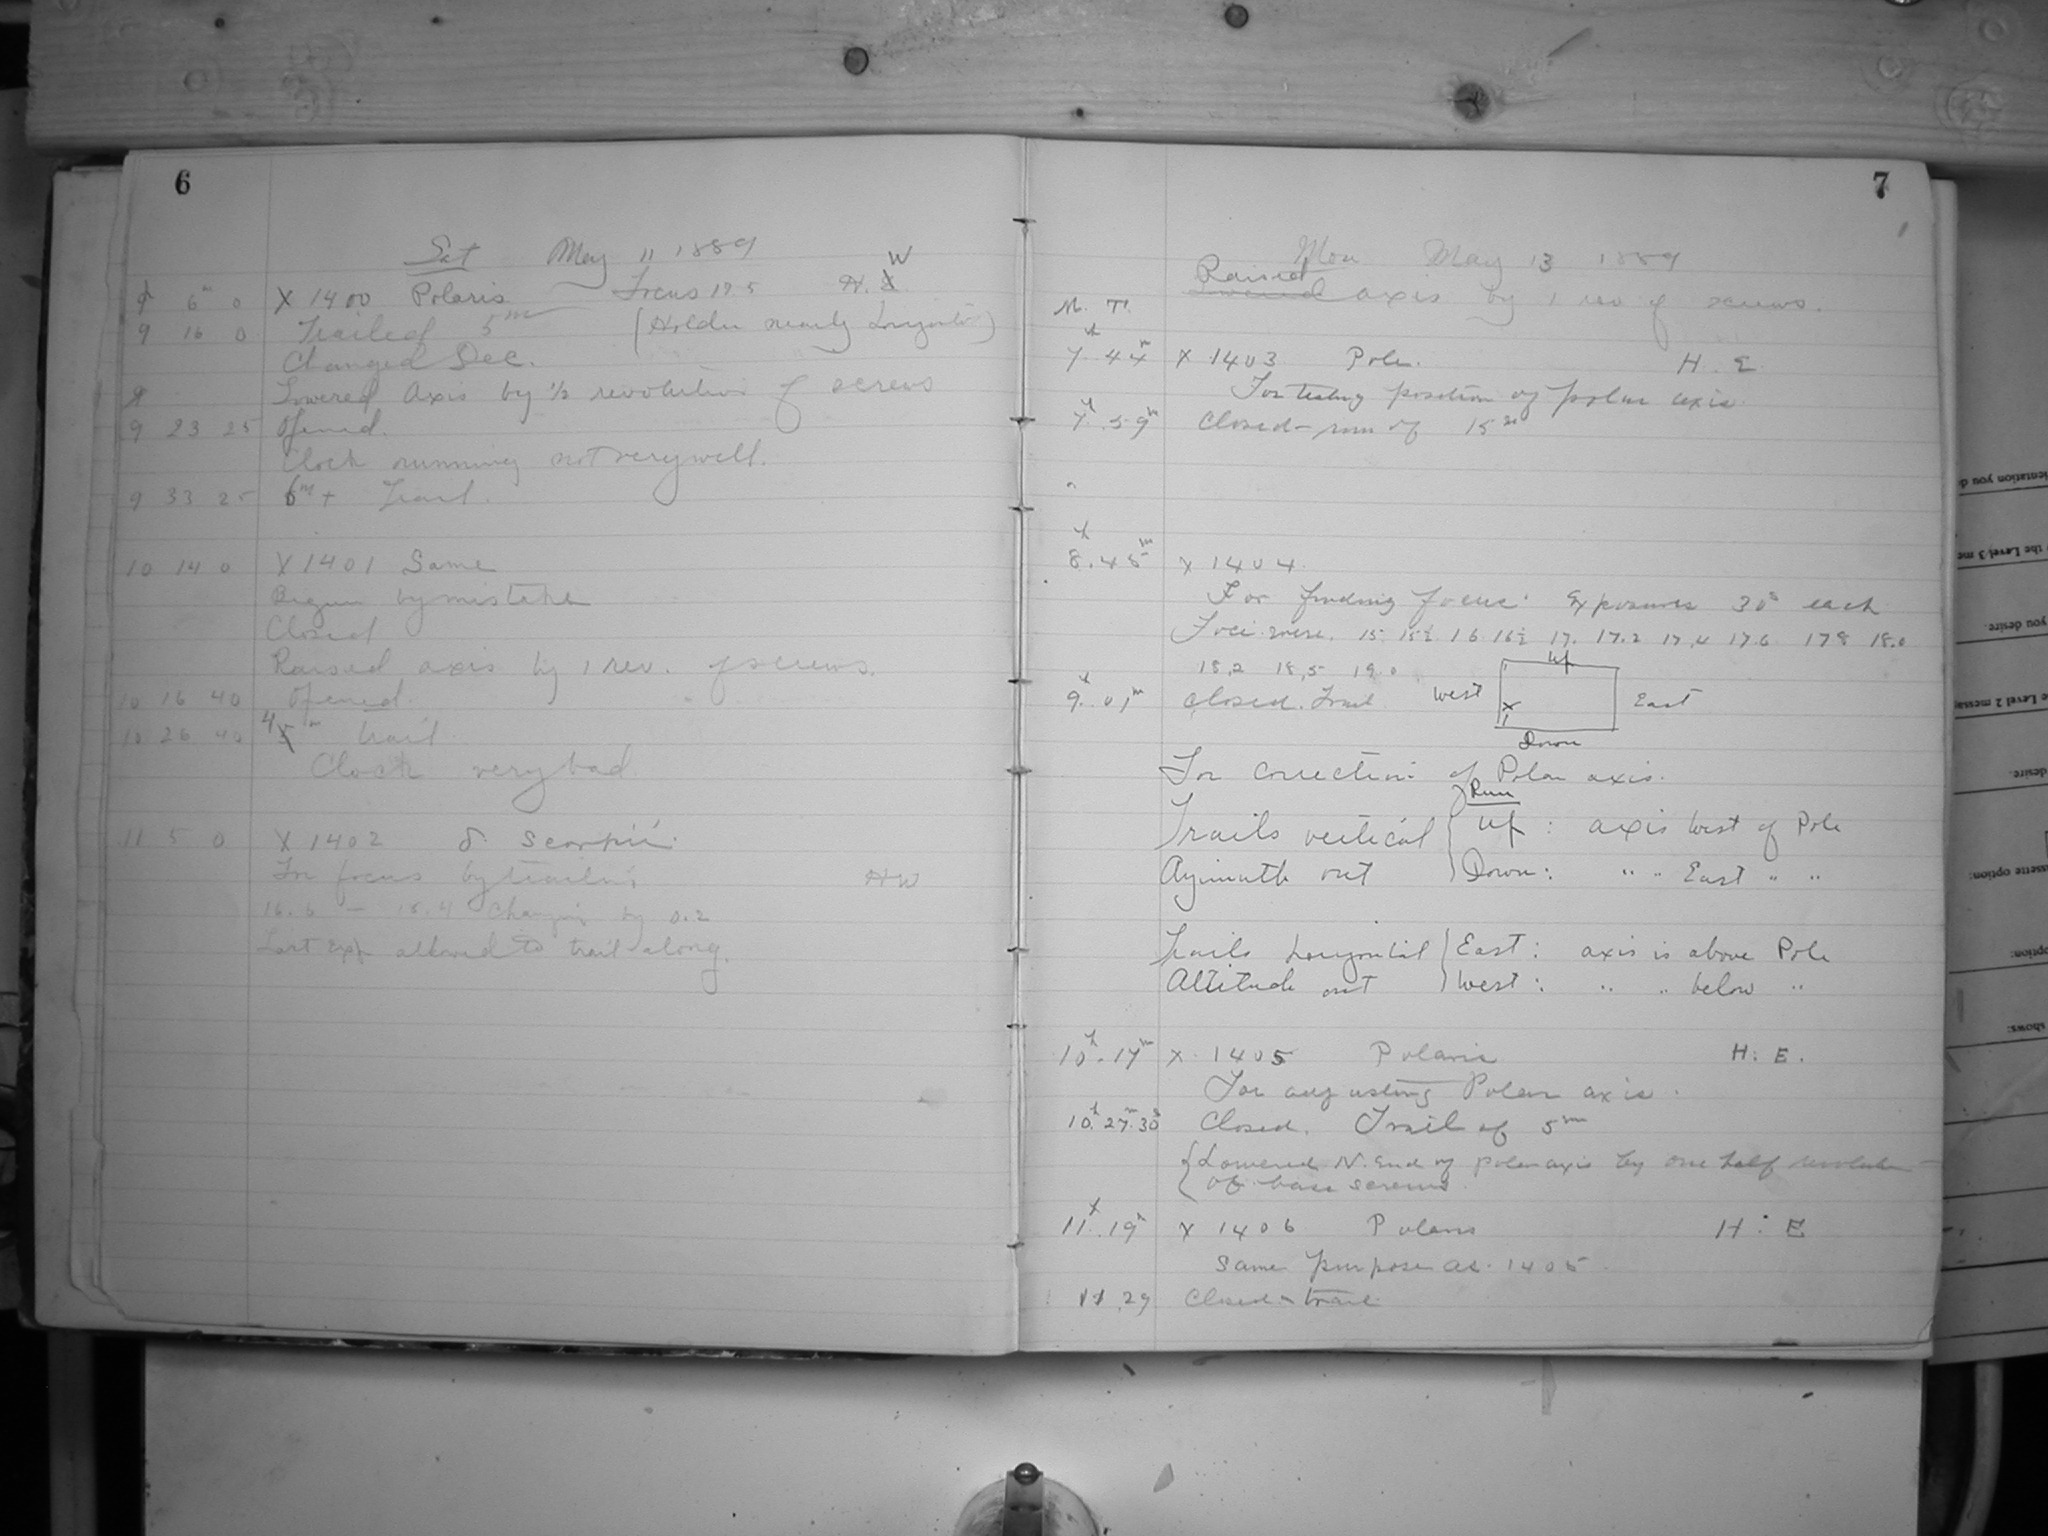 6
Sat May 11 1889
9 6m 0 X 1400 Polaris Focus 17.5 H. W
9 16 0 Trail of 5m (Holder nearly horizontal)
Changed Dec.
Lowered Axis by 1/2 revolution of screws
9 23 25 Opened.
Clock running not very well.
9 33 25 6m + Trail.
10 14 0 X 1401 Same
Begun by mistake
Closed
Raised axis by 1 rev. of screws.
10 16 40 Opened.
10 26 40 4m trail
Clock very bad.
11 5 0 X 1402 δ. Scorpii.
For focus by trailing HW
16.6 – 18.4 Changing by 0.2
Last Exp. allowed to trail along.
7
Mon May 13 1889
Raised
Lowered axis by 1 rev of screws.
M. T.
7h 44m X 1403 Pole. H. E.
For testing position of polar axis.
7h 59m Closed – run of 15m
8h 45m X 1404.
For finding focus. Exposures 30s each
Foci were. 15. 15½ 16 16½ 17. 17.2 17.4 17.6 17.8 18.0
18.2 18.5 19.0
9h 01m Closed. Trail West Up East
X
Down
For correction of Polar axis.
Run
Trails vertical Up : axis West of Pole
Azimuth out Down: " " East " "
Trails horizontal East : axis is above Pole
Altitude out West : " " below "
10h. 17m X. 1405 Polaris H. E.
For adjusting Polar axis.
10h. 27m. 30s Closed. Trail of 5m
Lowered N. End of polar axis by one half revolution
of base screws.
11h. 19m X 1406 Polaris H. E
Same purpose as. 1405
11. 29 Closed – trail
ientation you de
the Level 3 me
you desire.
e Level 2 messa
desire.
ssette option:
option:
shows: